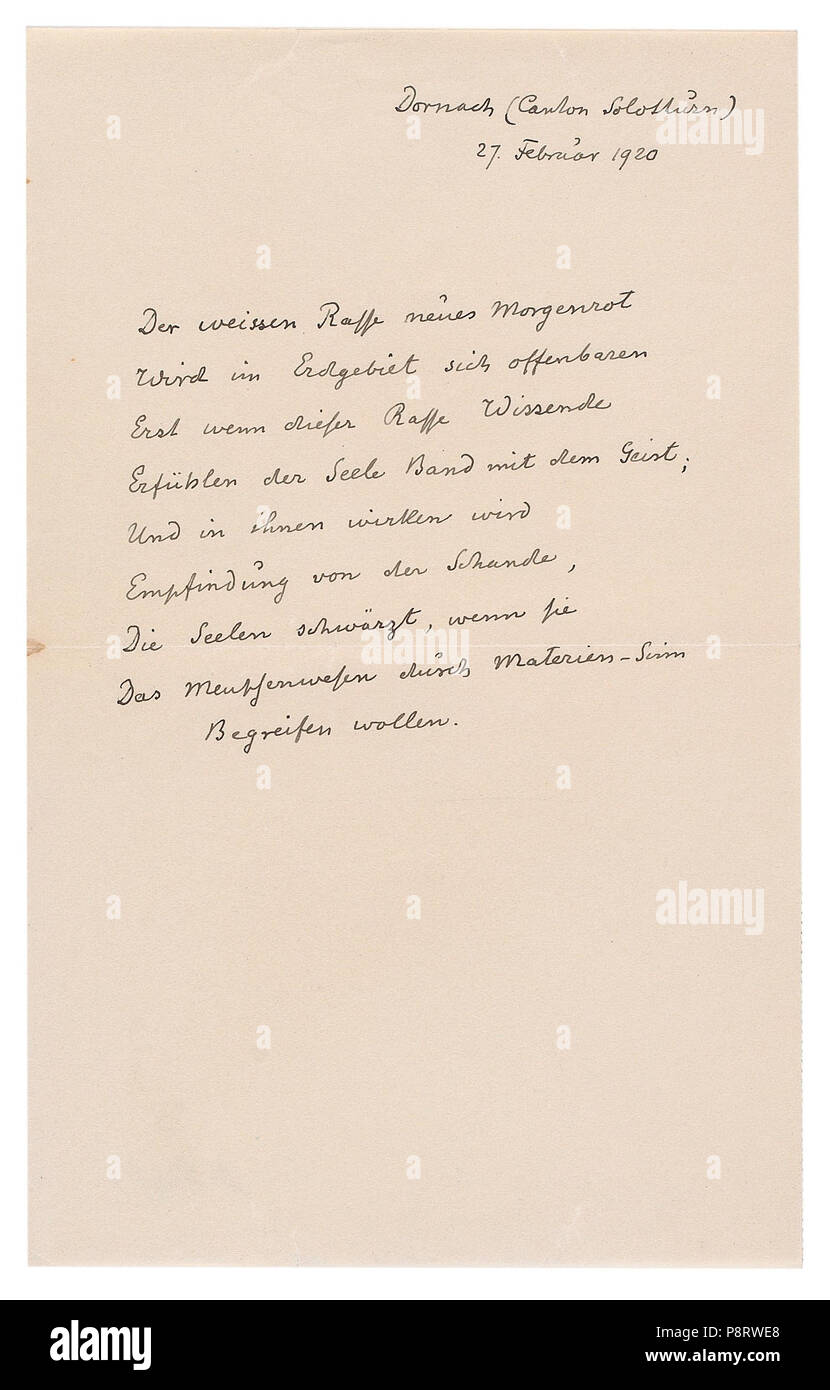 Dornach (Canton Solothurn)
27. Februar 1920
Der weissen Rasse neues Morgenrot
Wird im Erdgebiet sich offenbaren
Erst wenn dieser Rasse Wissende
Erfühlen der Seele Band mit dem Geist;
Und in ihnen wirken wird
Empfindung von der Schande,
Die Seelen schwärzt, wenn sie
Das Menschenwesen durch Materien-Sinn
Begreifen wollen.
alamy
a
a
a
a
a
alamy
a
a
alamy
a
a
a
a
a
a
a
alamy
Image ID: P8RWE8
www.alamy.com